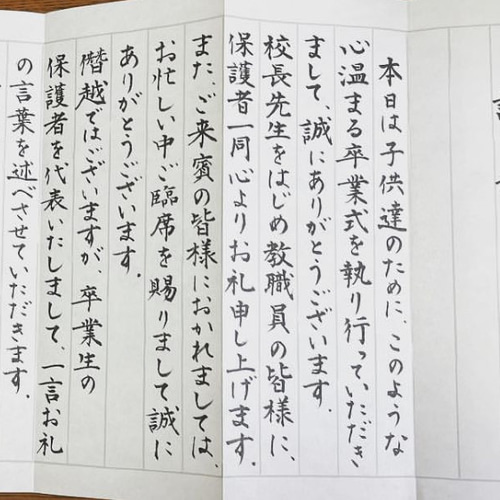 本日は子供達のために、このような
心温まる卒業式を執り行っていただき
まして、誠にありがとうございます。
校長先生をはじめ教職員の皆様に、
保護者一同心よりお礼申し上げます。
また、ご来賓の皆様におかれましては、
お忙しい中ご臨席を賜りまして誠に
ありがとうございます。
僭越ではございますが、卒業生の
保護者を代表いたしまして、一言お礼
の言葉を述べさせていただきます。